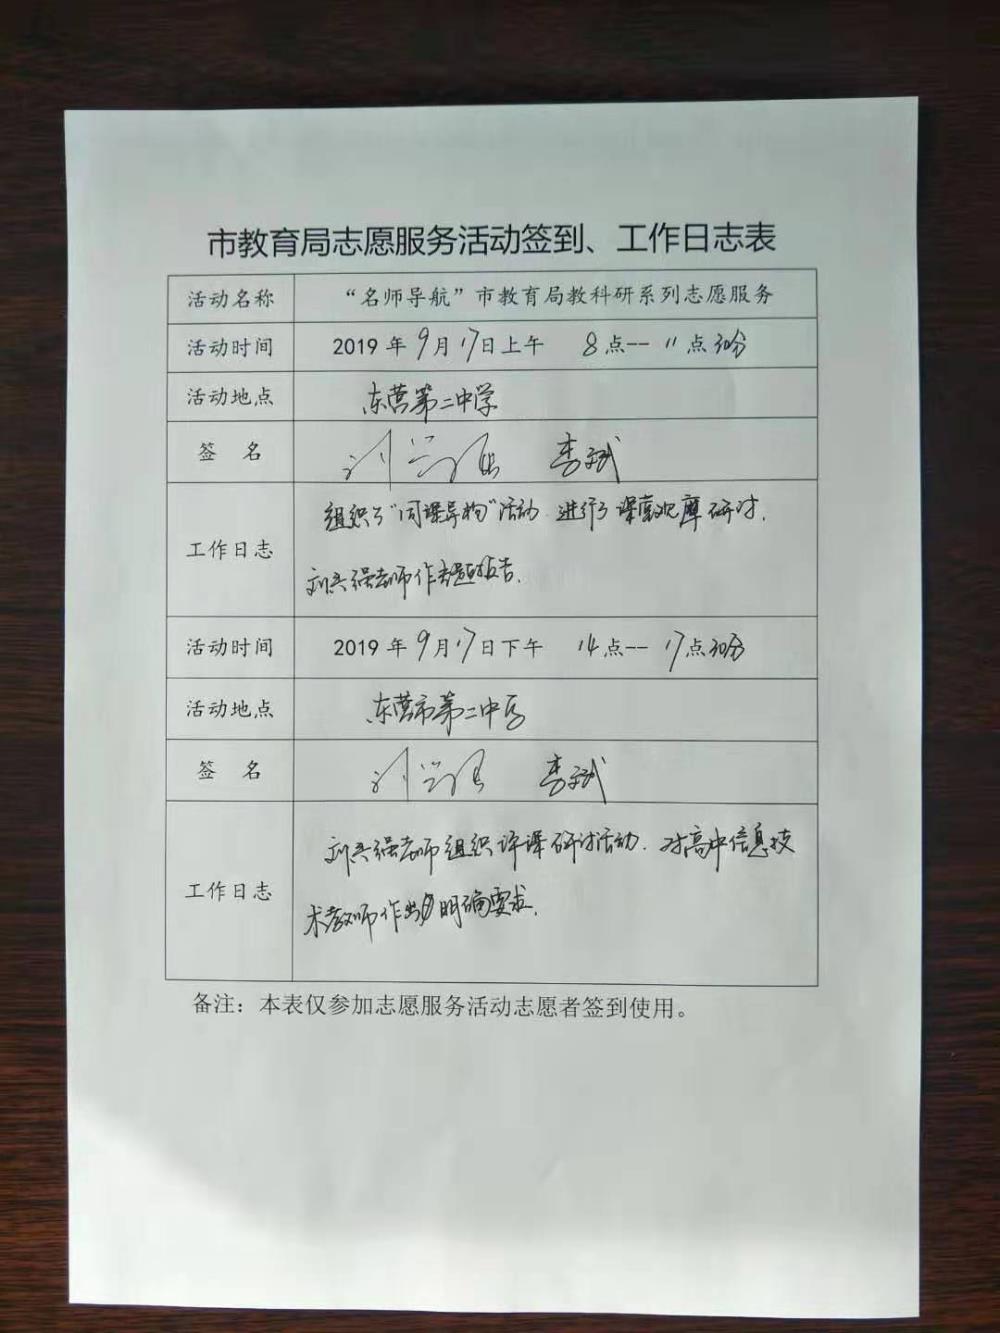 市教育局志愿服务活动签到、工作日志表
活动名称 “名师导航”市教育局教科研系列志愿服务
活动时间 2019 年 9 月 17 日上午 8 点-- 11 点 30分
活动地点 东营第二中学
签 名 刘兴强 李斌
工作日志 组织了“同课异构”活动.进行了课堂观摩研讨.
刘兴强老师作专题报告.
活动时间 2019 年 9 月 17 日下午 14 点-- 17 点 30分
活动地点 东营市第二中学
签 名 刘兴强 李斌
工作日志 刘兴强老师组织评课研讨活动.对高中信息技
术教师作出明确要求.
备注：本表仅参加志愿服务活动志愿者签到使用。